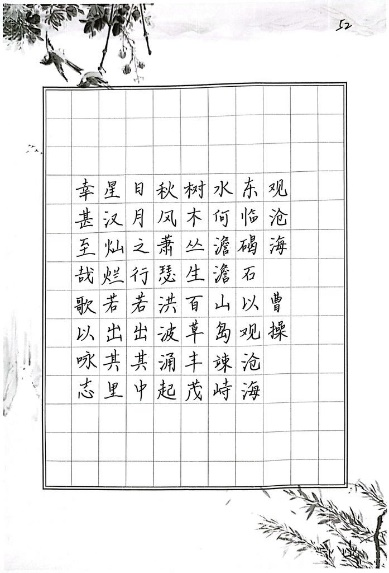 52
观沧海 曹操
东临碣石以观沧海
水何澹澹山岛竦峙
树木丛生百草丰茂
秋风萧瑟洪波涌起
日月之行若出其中
星汉灿烂若出其里
幸甚至哉歌以咏志